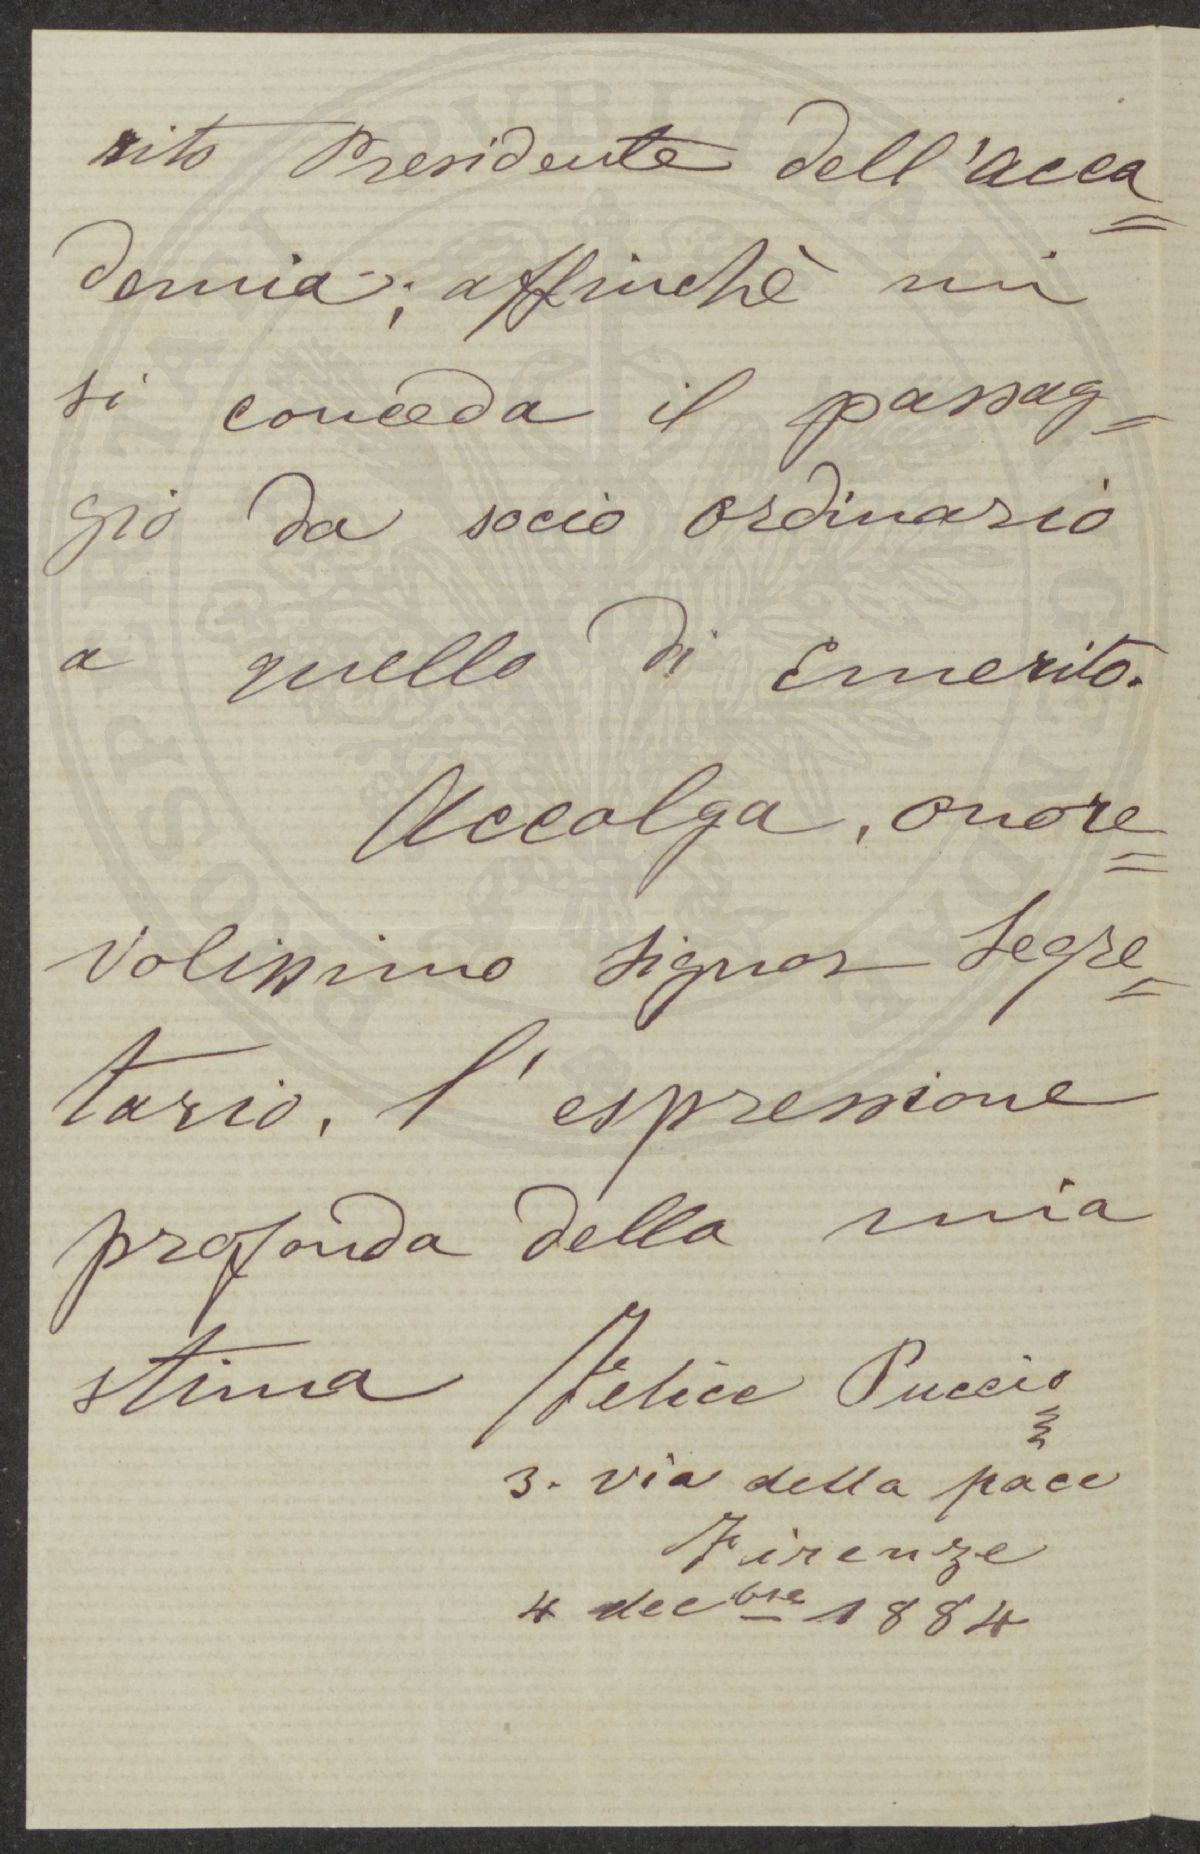 rito Presidente dell'acca=
demia; affinchè mi
si conceda il passag=
gio da socio ordinario
a quello di Emerito.
Accolga, onore=
volissimo signor segre=
tario, l'espressione
profonda della mia
stima Felice Puccio
3. via della pace
Firenze
4 decbre 1884